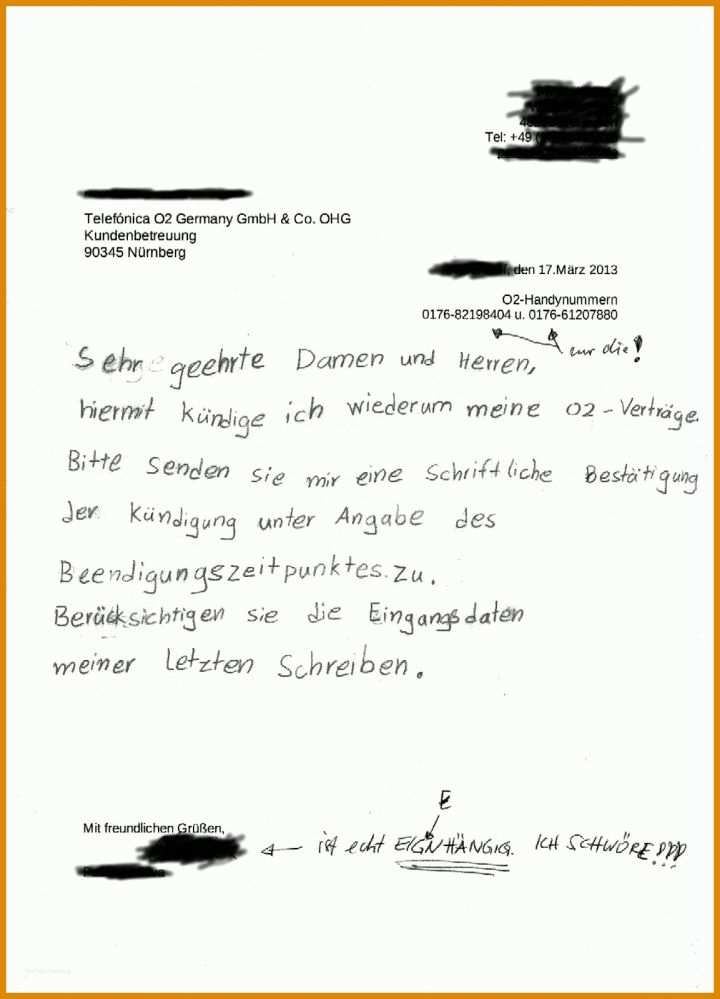 Tel: +49
Telefónica O2 Germany GmbH & Co. OHG
Kundenbetreuung
90345 Nürnberg
, den 17.März 2013
O2-Handynummern
0176-82198404 u. 0176-61207880
nur die!
Sehr geehrte Damen und Herren,
hiermit kündige ich wiederum meine O2-Verträge.
Bitte Senden sie mir eine Schriftliche Bestätigung
der Kündigung unter Angabe des
Beendigungszeitpunktes zu.
Berücksichtigen sie die Eingangsdaten
meiner letzten Schreiben.
E
Mit freundlichen Grüßen,
ist echt EIGNHÄNGIG. ICH SCHWÖRE!!!